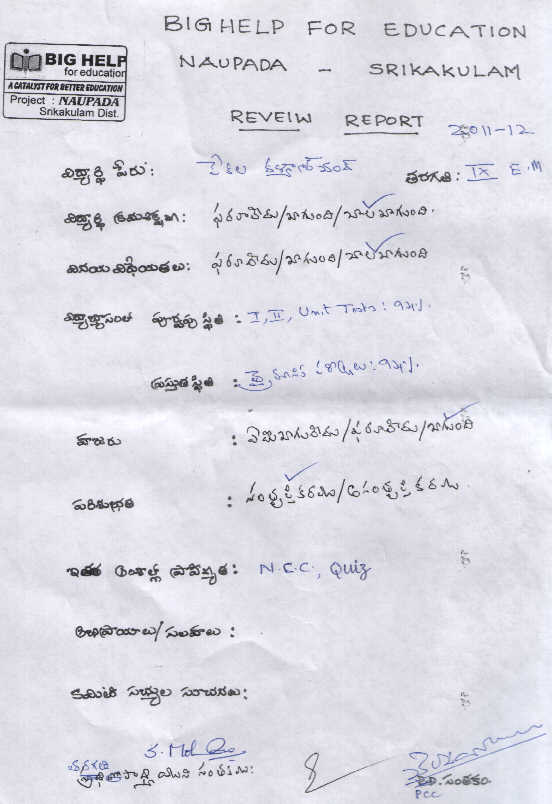 BIG HELP FOR EDUCATION
NAUPADA - SRIKAKULAM
BIG HELP
for education
A CATALYST FOR BETTER EDUCATION
Project : NAUPADA
Srikakulam Dist.
REVEIW REPORT 2011-12
విద్యార్థి పేరు: తరగతి: IX E.M
విద్యార్థి క్రమశిక్షణ: ఫరవాలేదు/బాగుంది/చాలబాగుంది.
వినయ విధేయతలు: ఫరవాలేదు/బాగుంది/చాలబాగుంది
విద్యాభ్యాసంలో పూర్వపు స్థితి : I, II, Unit Tests: 92%.
ప్రస్తుత స్థితి : 92%.
హాజరు : ఏమిబాగులేదు/ఫరవాలేదు/బాగుంది
పరిశుభ్రత : సంతృప్తికరము/అసంతృప్తికరము.
ఇతర ప్రావీణ్యత: N.C.C., Quiz
అభిప్రాయాలు/సలహాలు :
కమిటీ సభ్యుల సూచనలు:
తరగతి సంతకము: సంతకం
PCC